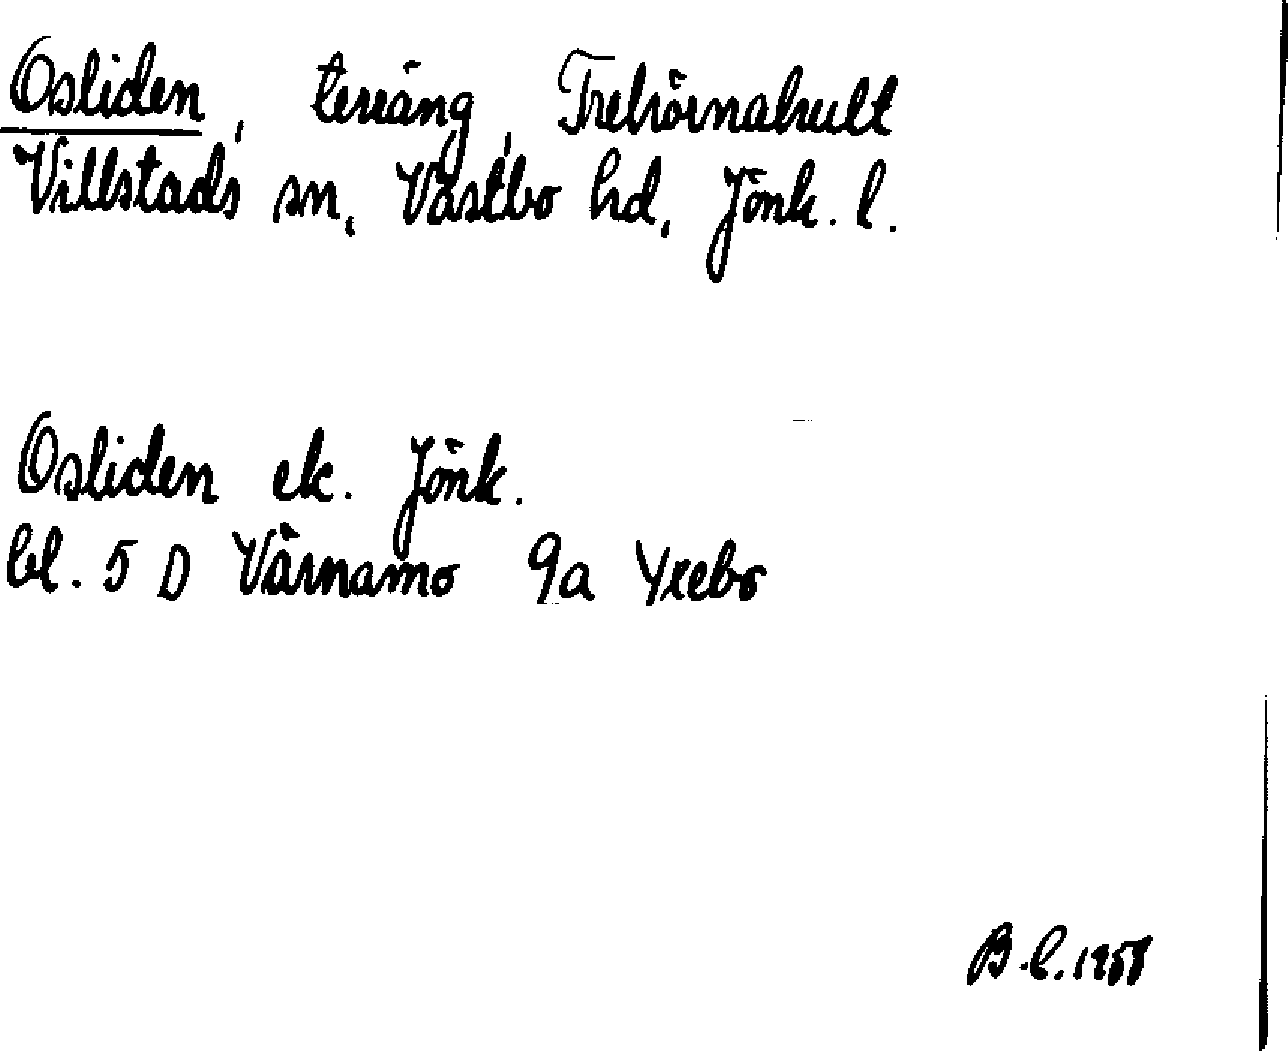 Osliden, terräng, Trehörnahult
Villstads sn, Västbo hd, Jönk. l.
Osliden ek. Jönk.
bl. 5 D Värnamo 9a Yxebo
B.L. 1958